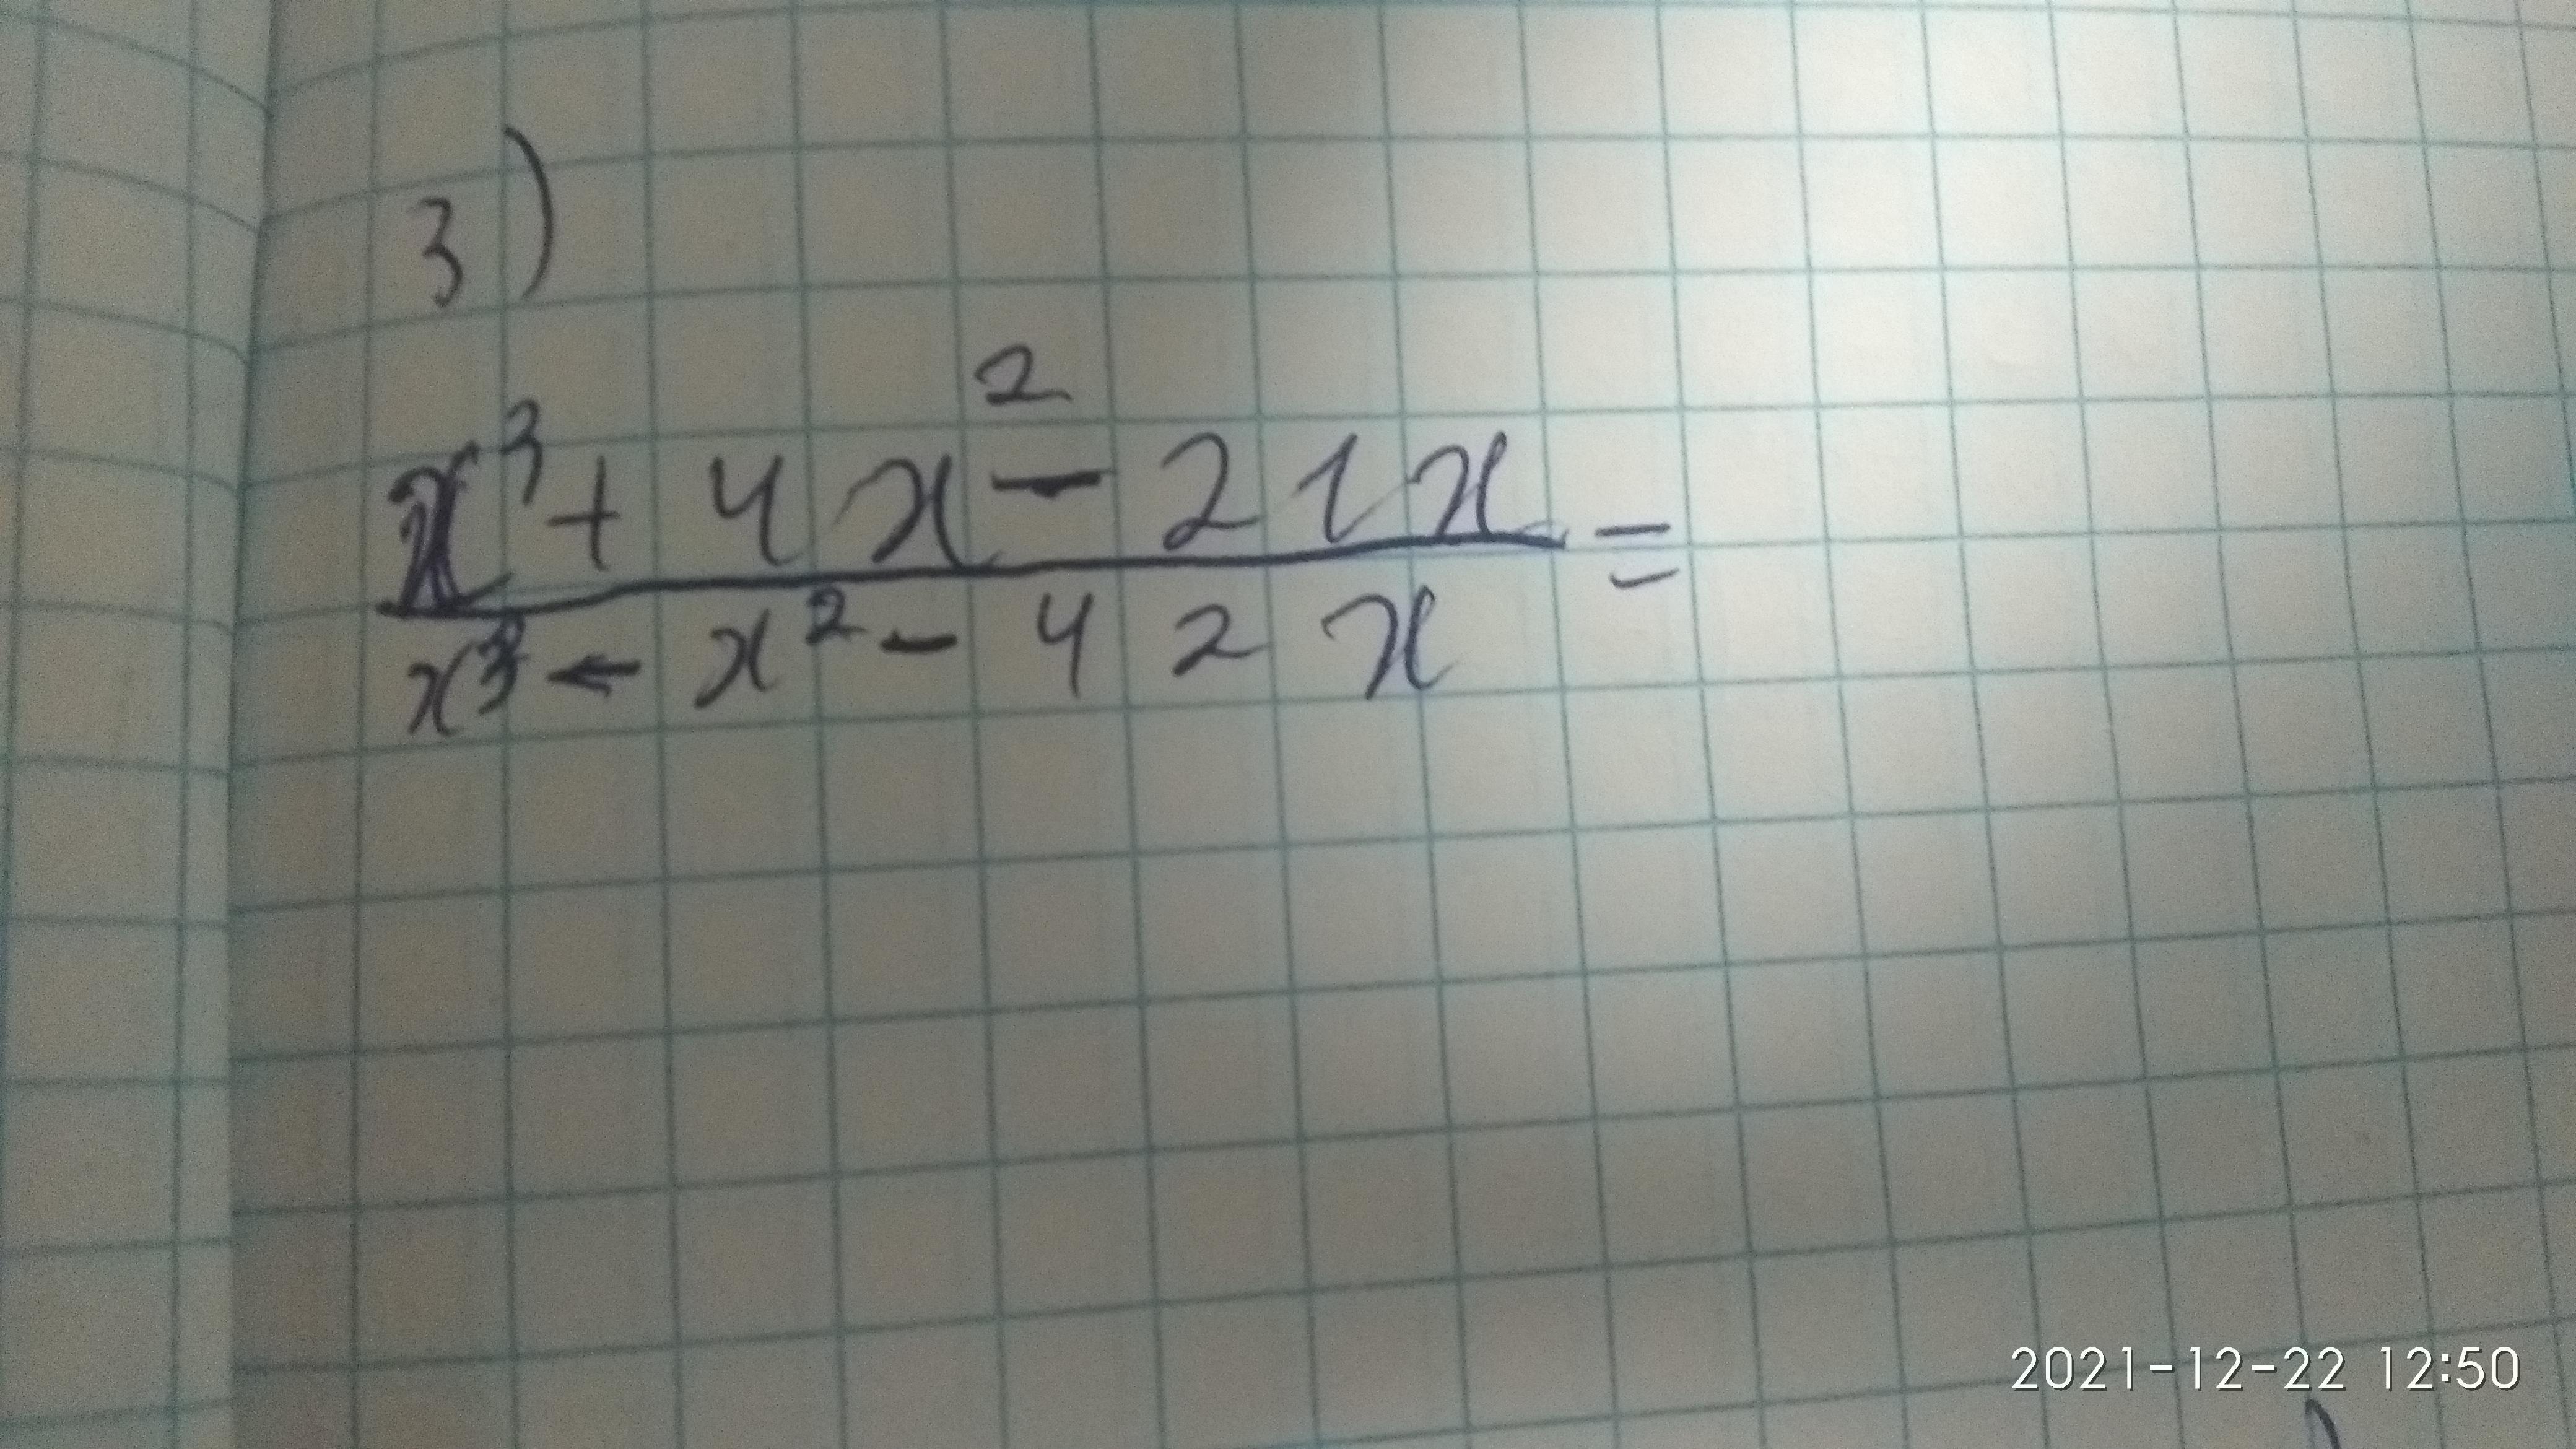 3)
x³ + 4x² - 21x =
x³ - x² - 42x
2021-12-22 12:50